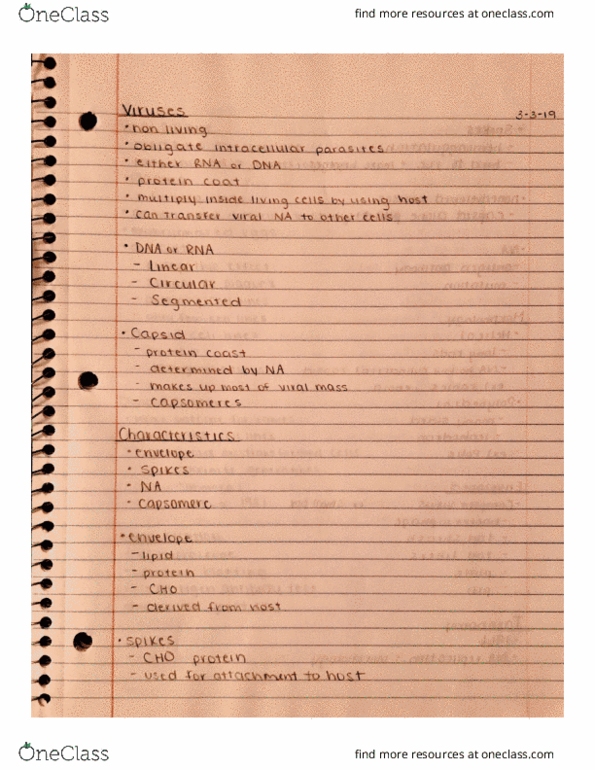 OneClass
find more resources at oneclass.com
Viruses
3-3-19
• non living
• obligate intracellular parasites
• either RNA or DNA
• protein coat
• multiply inside living cells by using host
• can transfer viral NA to other cells
• DNA or RNA
- Linear
- Circular
- Segmented
• Capsid
- protein coast
- determined by NA
- makes up most of viral mass
- capsomeres
Characteristics
• envelope
• spikes
• NA
• capsomere
• envelope
- lipid
- protein
- CHO
- derived from host
• spikes
- CHO protein
- used for attachment to host
OneClass
find more resources at oneclass.com